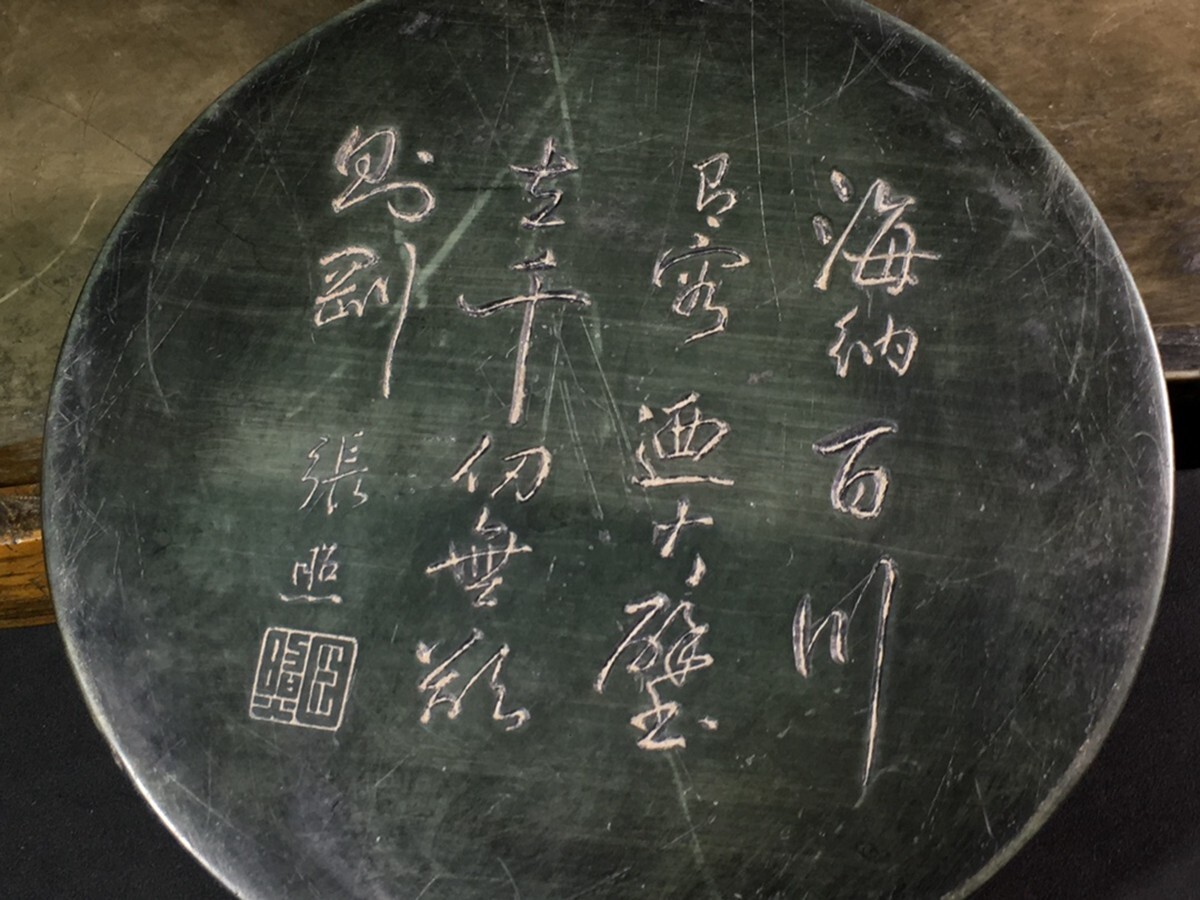 海納百川
有容迺大壁
立千仞無欲
則剛
張照